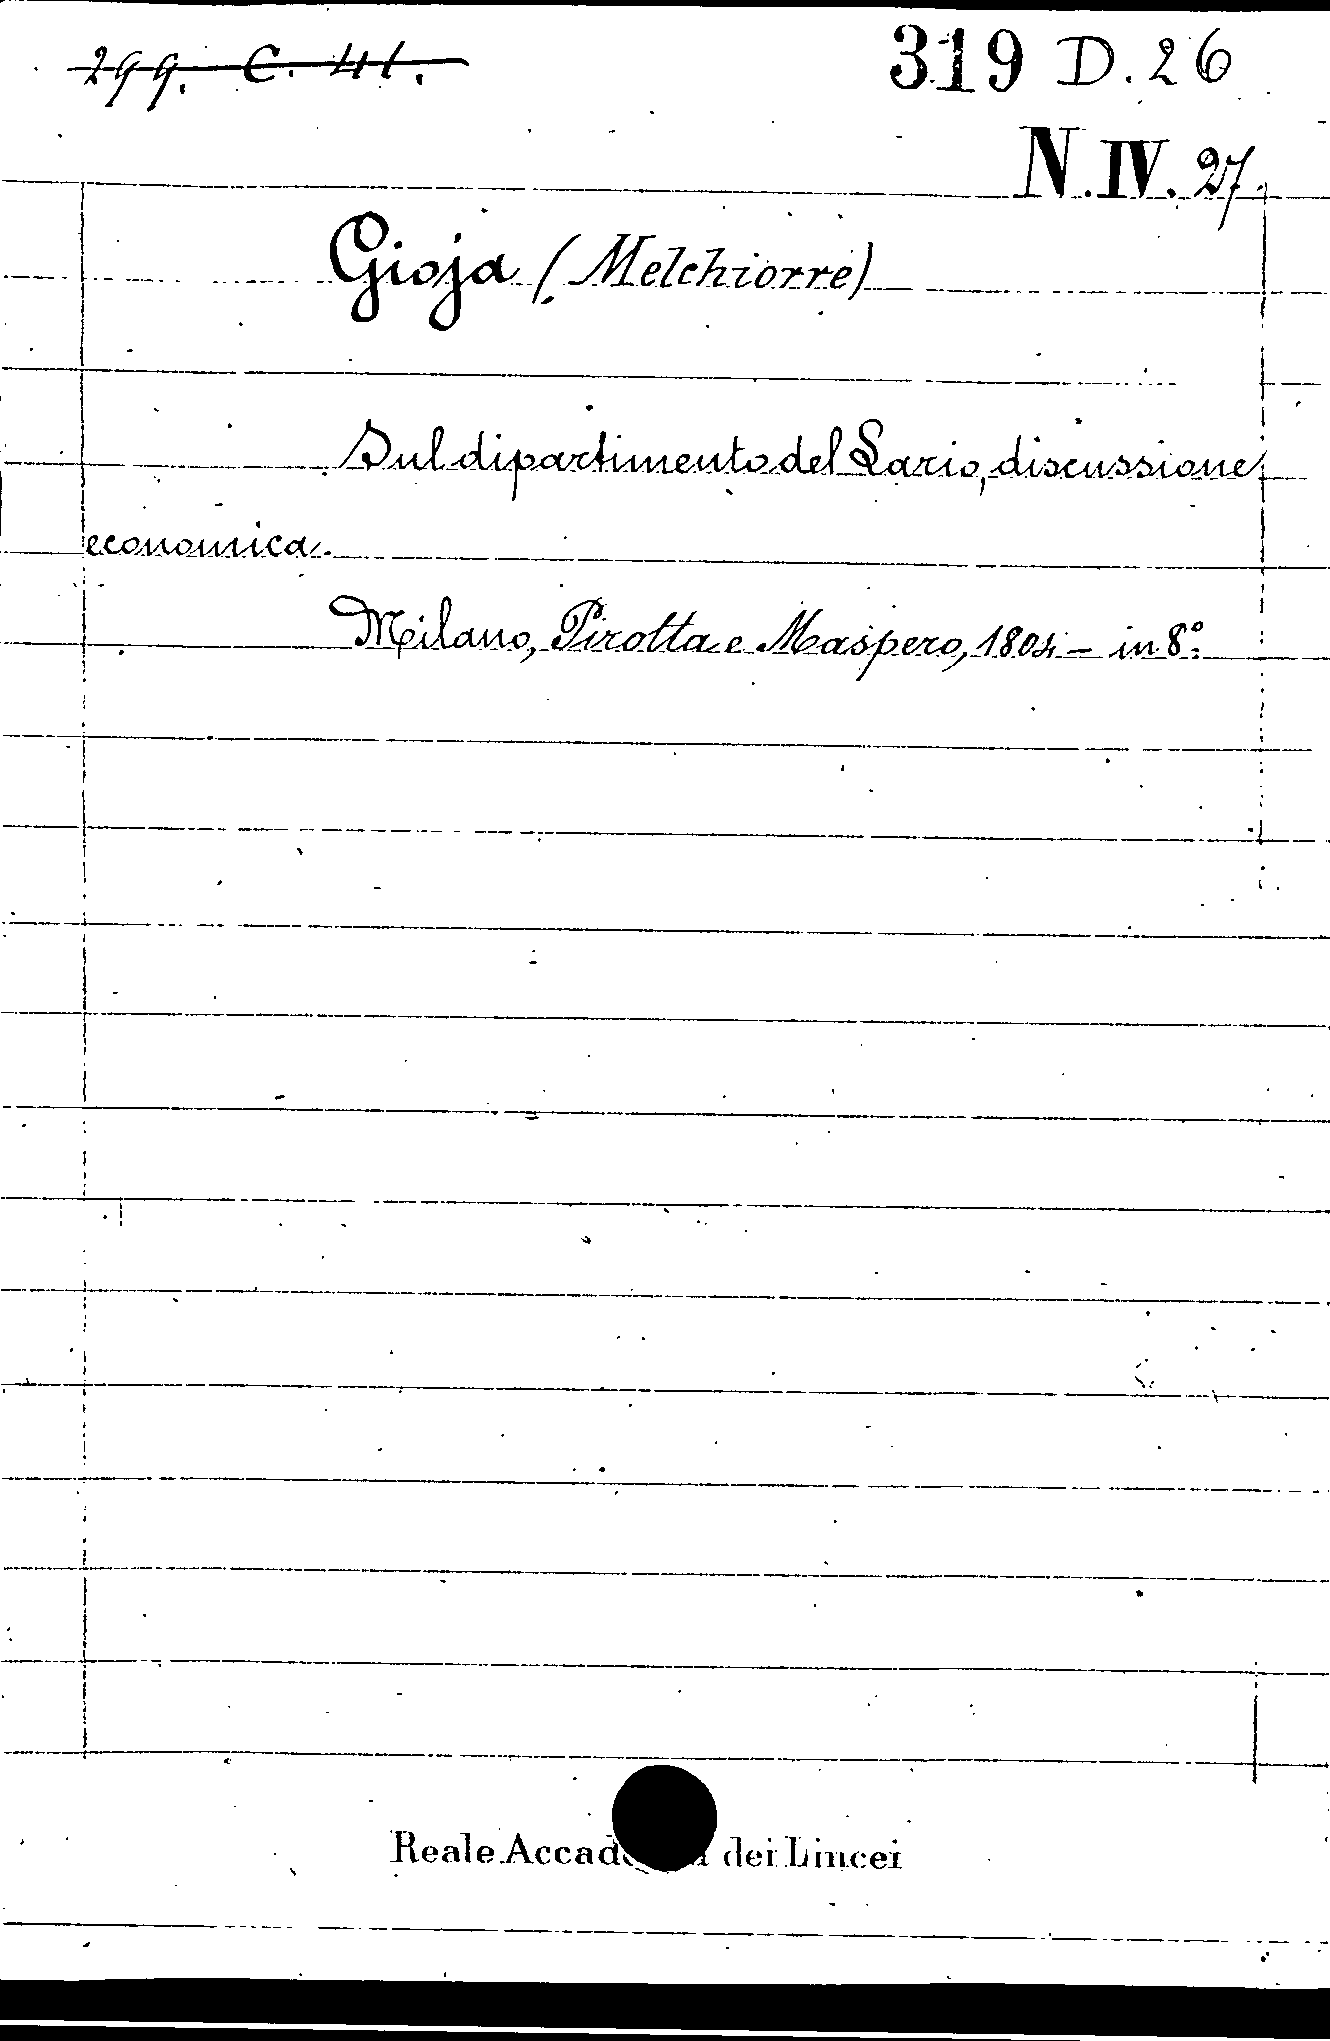 299. C. 41.
319 D. 26
N. IV. 27.
Gioja (Melchiorre)
Sul dipartimento del Lario, discussione
economica.
Milano, Pirotta e Maspero, 1804 – in 8°:
Reale Accad dei Lincei